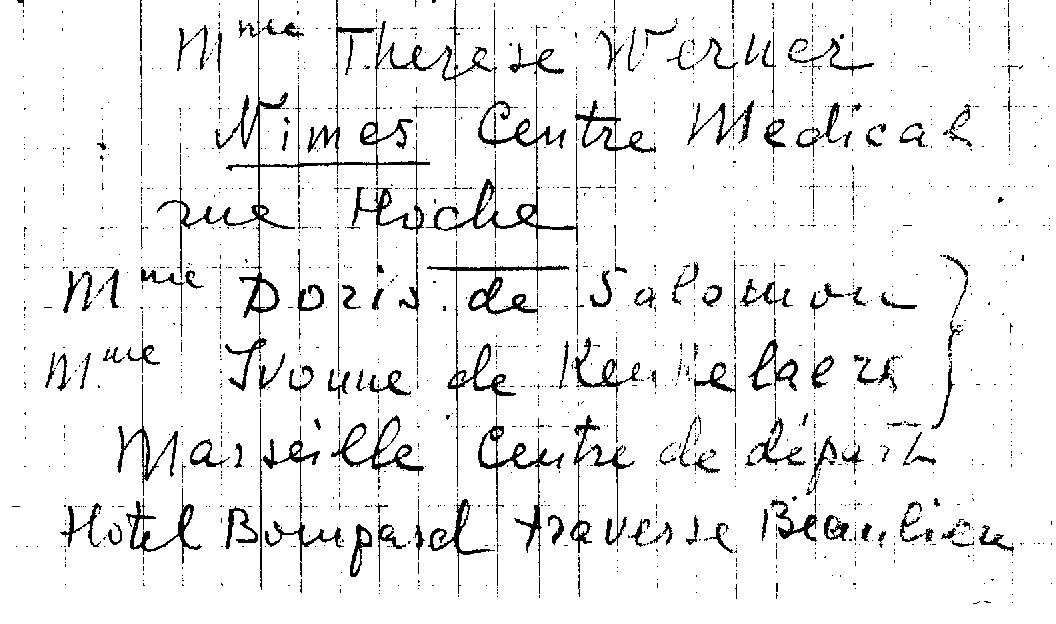 Mme Therese Werner
Nimes Centre Medical
rue Hoche
Mme Doris de Salomon
Mme Ivonne de
Marseille Centre de départ
Hotel Bompard traverse Beaulieu